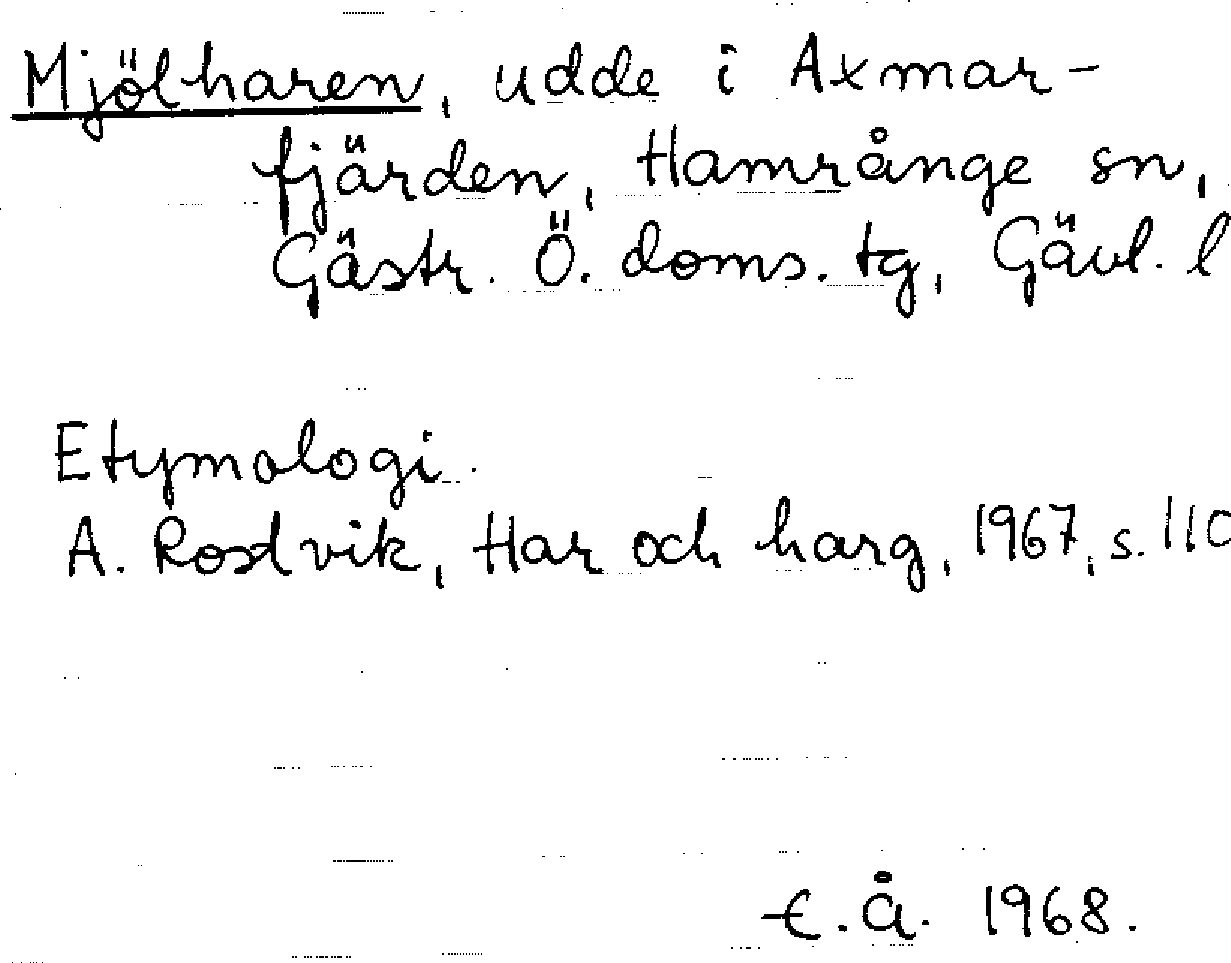 Mjölharen, udde i Axmar-
fjärden, Hamrånge sn,
Gästr. Ö. doms. tg, Gävl. l
Etymologi.
A. Rostvik, Har och harg, 1967, s. 110
E.Å. 1968.